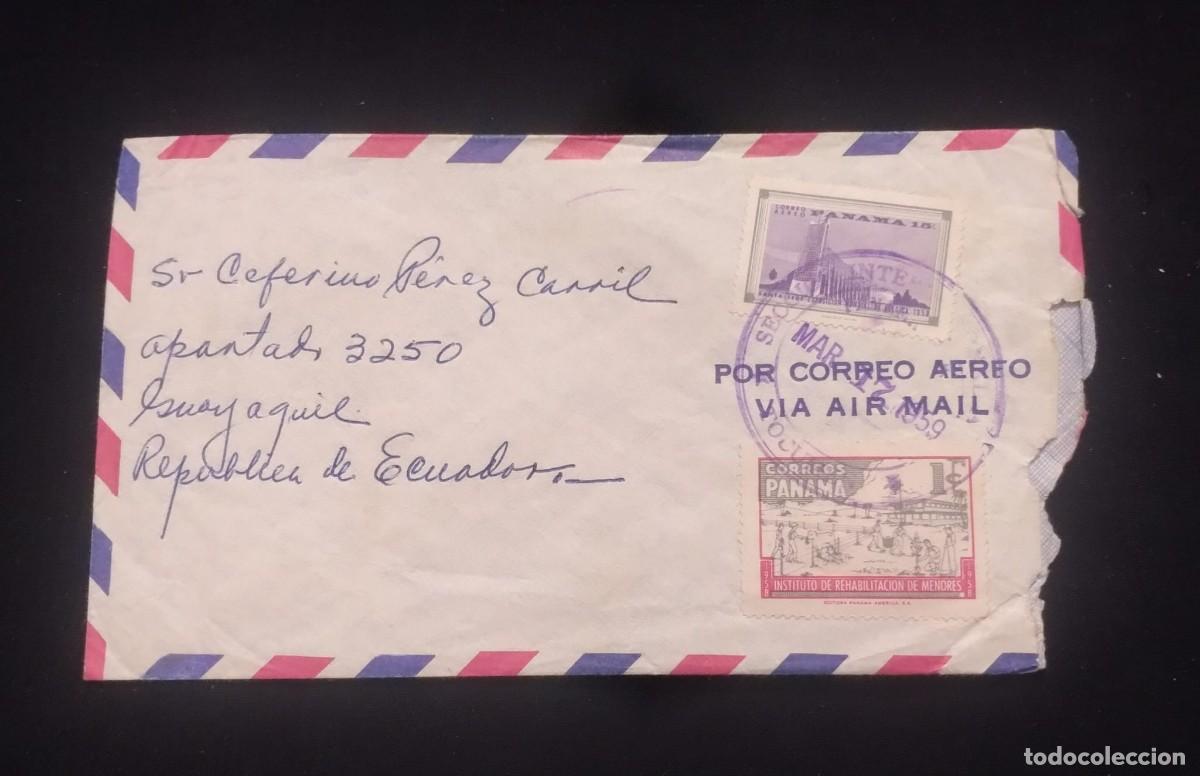 Sr Ceferino Pérez Carril
apartado 3250
Guayaquil
Republica de Ecuador.
CORREO AEREO
PANAMA 15
MAR 17 1959
POR CORREO AEREO
VIA AIR MAIL
CORREOS
PANAMA
1¢
1958
INSTITUTO DE REHABILITACION DE MENORES
1958
EDITORA PANAMA AMERICA, S.A.
todocoleccion